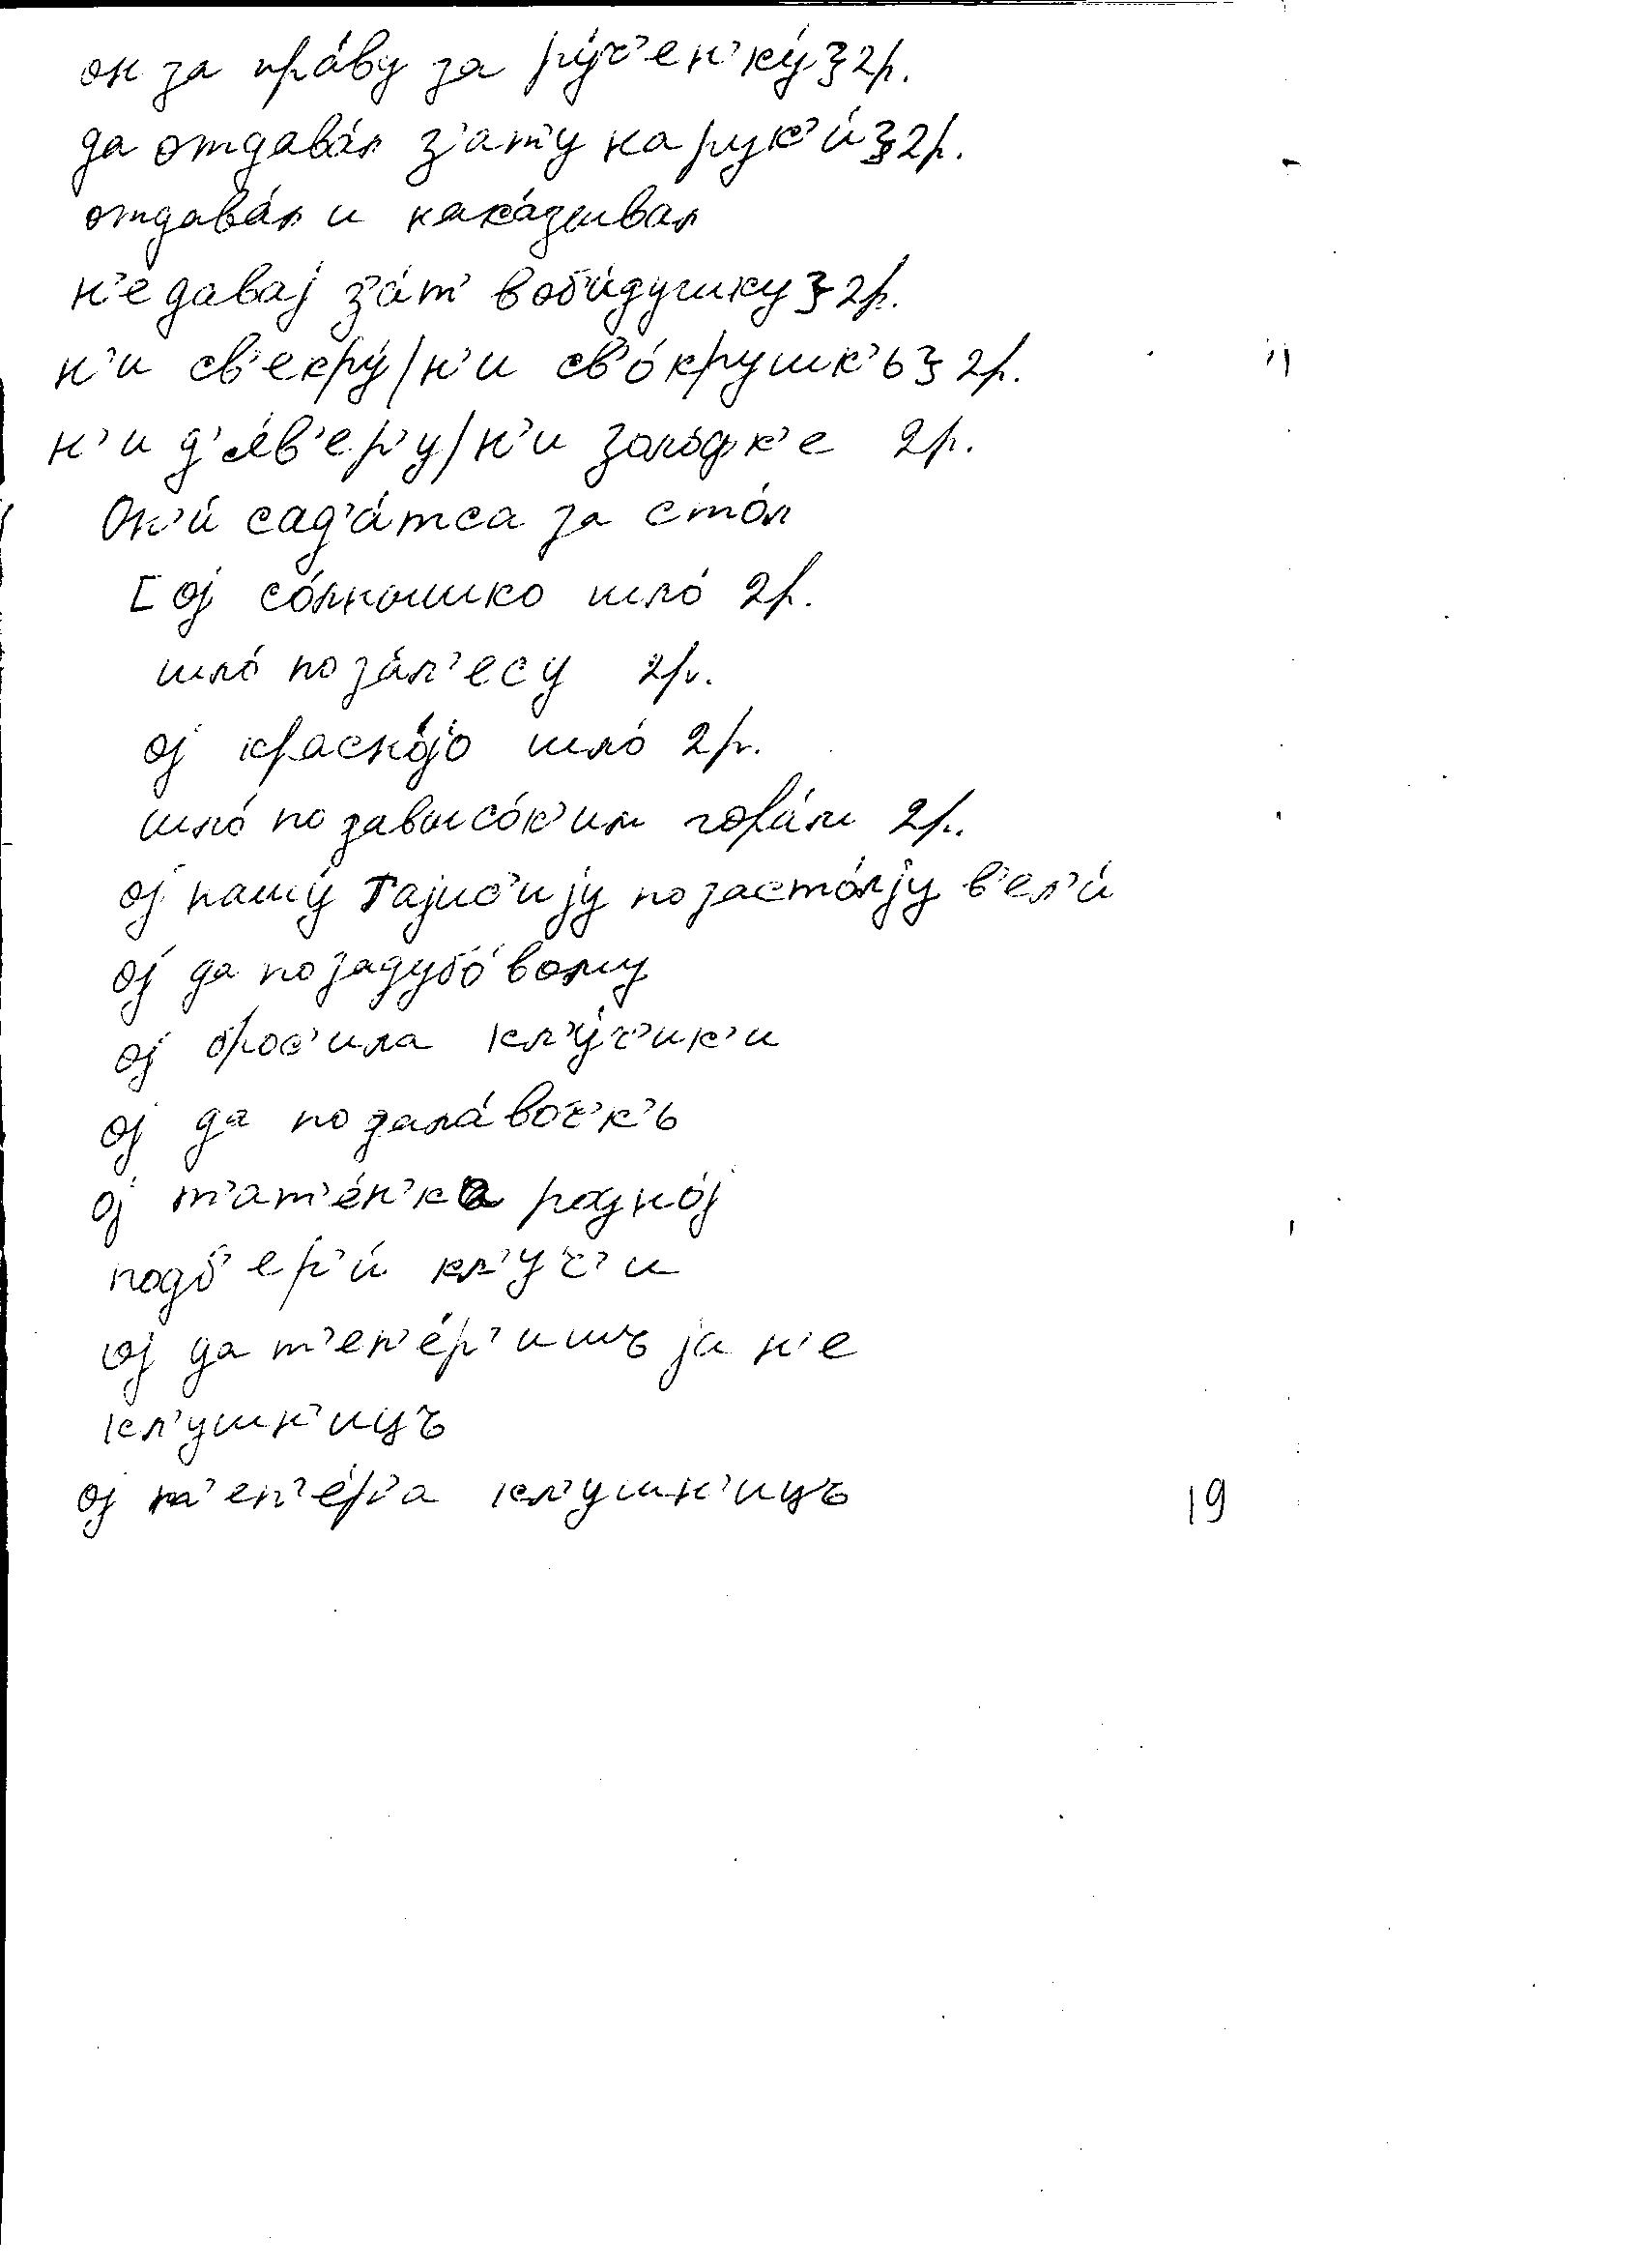 он за пра́ву за ру́ч’ен’ку́ } 2р.
да отдава́л з’ат’у на рук’и́ } 2р.
отдава́л и нака́зывал
н’е давај з’а́т’ в об’и́душку } 2р.
н’и св’екру́ / н’и св’о́крушк’ь } 2р.
н’и д’е́в’ер’у / н’и золо́фк’е 2р.
Он’и́ сад’а́тса за сто́л
[ ој со́лнышко шло́ 2р.
шло́ по за́л’есу 2р.
ој красно́јо шло́ 2р.
шло́ по завысо́к’им гора́м 2р.
ој нашу́ Таис’ију по засто́лју в’ел’и́
ој да по задубо́вому
ој брос’ила кл’у́ч’ик’и
ој да по зала́воч’к’ь
ој т’ат’е́н’ка родно́ј
подб’ер’и́ кл’уч’и
ој да т’еп’е́р’ишъ ја н’е
кл’ушн’ицъ
ој т’еп’е́р’а кл’ушн’ицъ
19